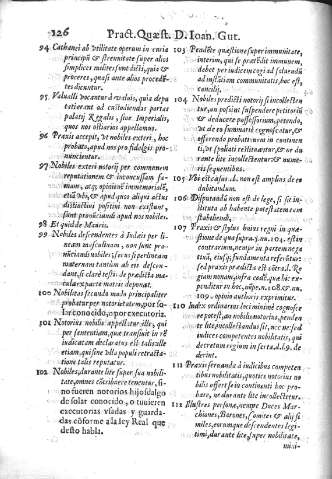 126 Pract. Quæst. D. Ioan. Gut.
94. Cathanei ab utilitate operum in curia
principū & strenuitate super alios
simplices milites sunt dicti, quia &
proceres, quasi ante alios procedē-
tes dicuntur.
95. Valualli vocantur à valuis, quia depu
tati erant ad custodiendas portas
palatij Regalis, siue Imperialis,
quos nos ostiarios appellamus.
96 Praxis accepit, ut nobiles exteri, hoc
probato, apud nos pro fidalgis pro-
nuncientur.
97 Nobiles exteri notorij per communem
reputationem & inconcussam fa-
mam, atque opinionē immemorialē,
etiā ubi, & apud quos aliqui actus
distinctiui positiui non existunt,
sunt pronūciandi apud nos nobiles.
98 Et quid de Mauris.
99 Nobiles descendentes à Iudæis per li-
neam masculinam, non sunt pro-
nūciandi nobiles, secus si per lineam
maternam tantùm ab eis descen-
dant, si clarè testes de prædicta ma-
cula ex parte matris deponāt.
100 Nobilitas secundo modo principaliter
probatur per notorietatem, por so-
lar conocido, o por executoria.
101 Notorius nobilis appellatur ille, qui
per sententiam, quæ transiuit in rē
iudicatam declaratus est talis ille
etiam, qui sine ulla populi retracta-
tione talis reputatur.
102 Nobiles, durante lite super sua nobili-
tate, omnes cōtribuere tenentur, si-
no fueren notorios hijosdalgo
de solar conocido, o tuuieren
executorias vsadas y guarda-
das cōforme a la ley Real que
desto habla.
103 Pendēte quæstione super immunitate,
interim, qui se prætēdit immunem,
debet per iudicem cogi ad soluendū
ad instantiam communitatis, hoc est,
concilij.
104 Nobiles prædicti notorij si incollectē-
tur, an possint articulum suspendere
& deducere possessorium, petendo,
ut de eo summariè cognoscatur, &
offerendo probare in continen-
ti, ut spoliati restituantur, & ne du-
rante lite incollectentur & nume-
ris sequentibus.
105 Ubi est casus .l. non est amplius de eo
dubitandum.
106 Disputandū non est de lege, si sit in-
stituta ab habente potestatem eam
stabiliendi.
107 Praxis & stylus huius regni in quæ-
stione de qua supra. q. nu. 104. est in
contrarium, nempe in partem nega-
tiuā, eiusque fundamenta referūtur:
sed praxis prædicta est cōtra .l. Re-
giam nouam, supra ead. quæ hic ex-
penditur in hoc, usque n. 108. &. nu.
109. opinio authoris exprimitur.
110 Iudex ordinarius loci minimè cognosce-
re potest, an nobilis notorius, penden-
te lite, incollectandus sit, nec ne sed
iudices competentes nobilitatis, qui
decretum regium inserte, d.l. 9. de-
derint.
111 Praxis seruanda à iudicibus competen-
tibus nobilitatis, quando notorius no-
bilis offert se in continenti hoc pro-
bare, ne durante lite incollectetur.
112 Illustres personæ, nempe Duces Mar-
chiones, Barones, Comites & alij si-
miles, eorumque descendentes legi-
timi, durante lite, super nobilitate,
mi-